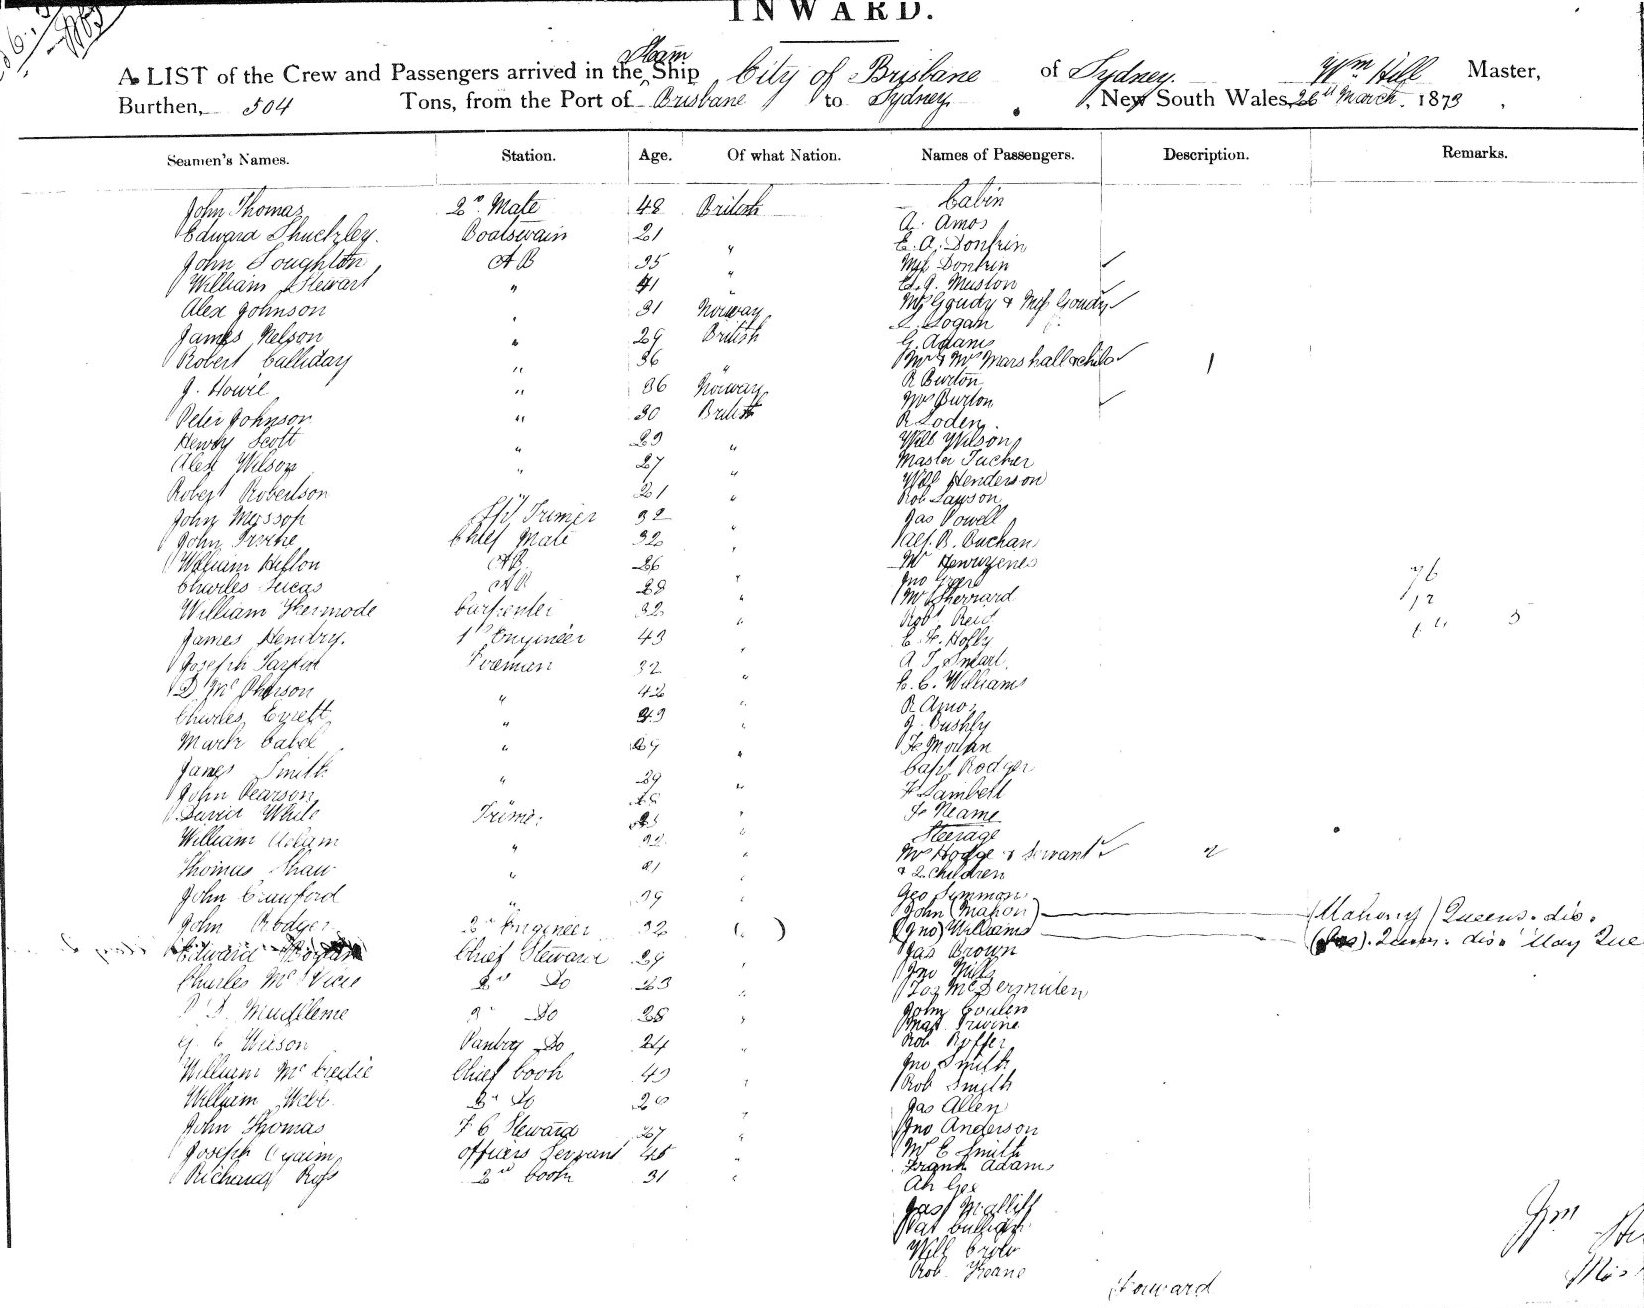 INWARD.
A LIST of the Crew and Passengers arrived in the Steam Ship City of Brisbane of Sydney. Wm Hill Master,
Burthen, 504 Tons, from the Port of Brisbane to Sydney, New South Wales, 26th March. 1873
Seamen's Names. Station. Age. Of what Nation. Names of Passengers. Description. Remarks.
John Thomas 2nd Mate 48 British Cabin
A. Amos
Edward Shuckley. Boatswain 21 " E. A. Donkin
John Loughton AB 35 " Miss Donkin
William Stewart " 41 " E. J. Muston
Alex Johnson " 31 Norway Mrs Goudy & Miss Goudy
Logan
James Nelson " 29 British G. Adams
Robert Calliday " 36 " Mr & Mrs Marshall & child 1
R Burton
J. Howie " 36 Norway Mrs Burton
Peter Johnson " 30 British R Soden.
Henry Scott " 29 " Will Wilson
Alex Wilson " 27 " Master Tucker
Will Henderson
Robert Robertson " 21 " Rob Lawson
John Mossop Trimer 32 " Jas Powell
John Irvine Chief Mate 32 " Alf. B. Buchan
William Hilton AB 26 Mr
Charles Lucas AB 28 " Jno Green
76
William Kermode Carpenter 32 " Mr Sherrard
12
Rob. Reid
James Hendry. 1st Engineer 43 " E. F. Holly
5
Joseph Fireman 32 " A T Smart.
D McPherson " 42 " E. C. Williams
R Amos
Charles Everett " 29 " J. Bushby
Mark Cabel " 29 " Moran
James Smith " 29 " Capt Rodger
John Pearson " F Lambell
David White Trimer " Neame
Steerage
William Adam " " Mrs Hodge & Servant 2
Thomas Shaw " 21 " & 2 Children
John Crawford " 39 " Geo Symmons
John (Mahon) (Mahony) Queens. dis.
John Rodger 2nd Engineer 32 (") (Jno) Williams
Edward Chief Steward 29 Jas Brown
Jno Mills
Charles McVicie 2nd Do 23 " McDermuten
3rd Do 28 " John Coulen
Irvine
Wilson Pantry Do 24 " Rob
William McCredie Chief Cook 43 " Jno Smith
Rob Smyth
William Webb 3rd Do Jas Allen
John Thomas F C Steward 27 " Jno Anderson
Joseph officers Servant 45 " Mr E Smith
Frank Adams
Richard 2nd Cook 31 " Ah Gee
Jas
Pat
Will Crow
Rob. Keane
Forward
Wm